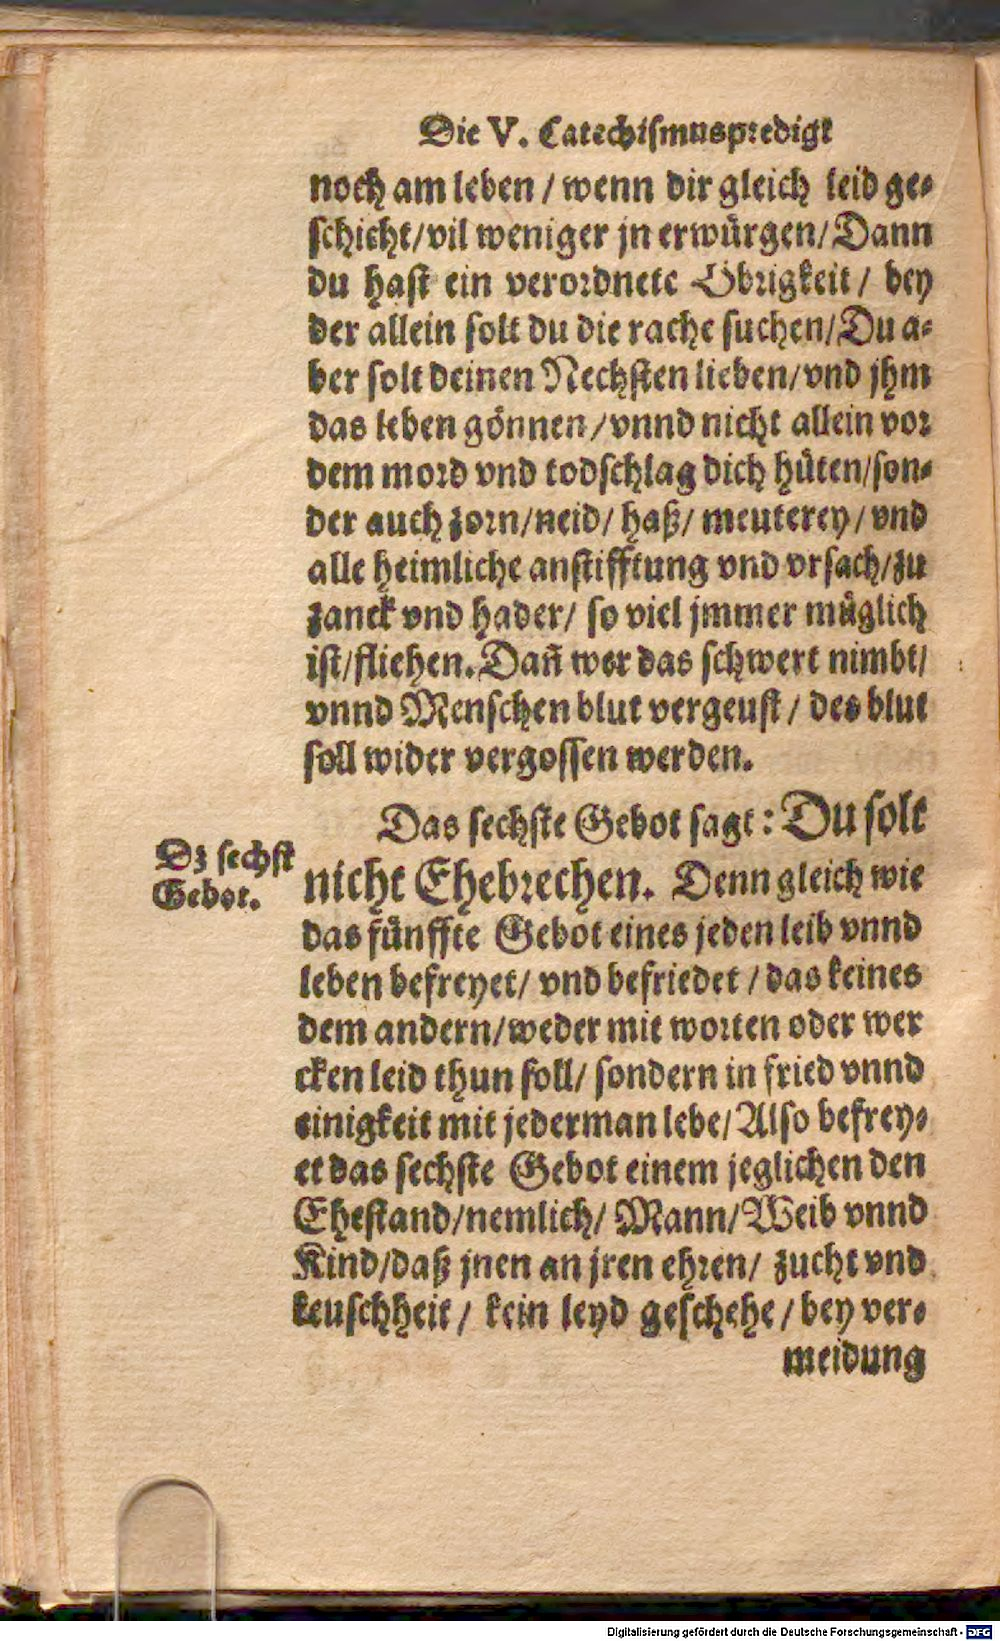 Die V. Catechismuspredigt
noch am leben / wenn dir gleich leid ge-
schicht/vil weniger jn erwürgen/Dann
du hast ein verordnete Obrigkeit / bey
der allein solt du die rache suchen/Du a-
ber solt deinen Nechsten lieben/vnd jhm
das leben gönnen/vnnd nicht allein vor
dem mord vnd todschlag dich hüten/son-
der auch zorn/neid/ haß/ meuterey/vnd
alle heimliche anstifftung vnd vrsach/zu
zanck vnd hader/ so viel jmmer müglich
ist/fliehen. Dañ wer das schwert nimbt/
vnnd Menschen blut vergeust / des blut
soll wider vergossen werden.
Das sechste Gebot sagt: Du solt
Dz sechst
Gebot.
nicht Ehebrechen. Denn gleich wie
das fünffte Gebot eines jeden leib vnnd
leben befreyet/ vnd befriedet / das keines
dem andern/weder mit worten oder wer
cken leid thun soll/ sondern in fried vnnd
einigkeit mit jederman lebe/Also befrey-
et das sechste Gebot einem jeglichen den
Ehestand/nemlich/ Mann/Weib vnnd
Kind/daß jnen an jren ehren/ zucht vnd
keuschheit / kein leyd geschehe / bey ver-
meidung
Digitalisierung gefördert durch die Deutsche Forschungsgemeinschaft - DFG